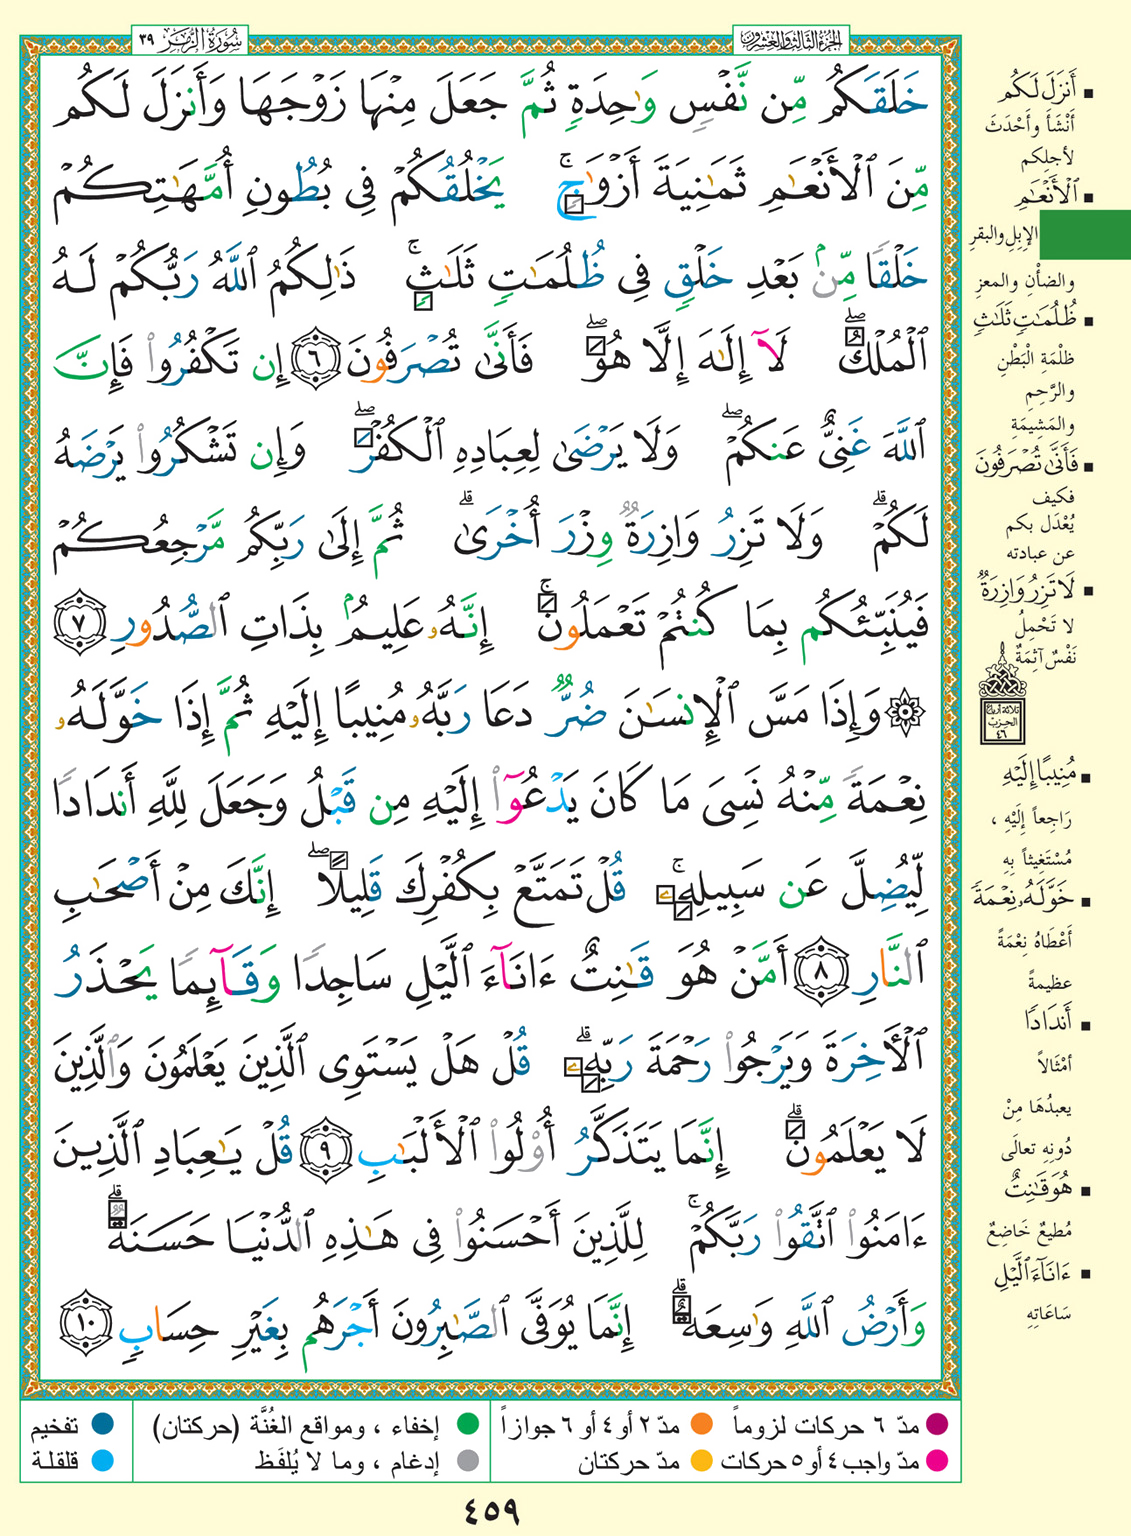 الجزء الثالث والعشرون
سُورَةُ الزُّمَر ٣٩
خَلَقَكُم مِّن نَّفْسٍ وَٰحِدَةٍ ثُمَّ جَعَلَ مِنْهَا زَوْجَهَا وَأَنزَلَ لَكُم
مِّنَ ٱلْأَنْعَٰمِ ثَمَٰنِيَةَ أَزْوَٰجٍ ۚ يَخْلُقُكُمْ فِى بُطُونِ أُمَّهَٰتِكُمْ
خَلْقًا مِّنۢ بَعْدِ خَلْقٍ فِى ظُلُمَٰتٍ ثَلَٰثٍ ۚ ذَٰلِكُمُ ٱللَّهُ رَبُّكُمْ لَهُ
ٱلْمُلْكُ ۖ لَآ إِلَٰهَ إِلَّا هُوَ ۖ فَأَنَّىٰ تُصْرَفُونَ ٦ إِن تَكْفُرُوا۟ فَإِنَّ
ٱللَّهَ غَنِىٌّ عَنكُمْ ۖ وَلَا يَرْضَىٰ لِعِبَادِهِ ٱلْكُفْرَ ۖ وَإِن تَشْكُرُوا۟ يَرْضَهُ
لَكُمْ ۗ وَلَا تَزِرُ وَازِرَةٌ وِزْرَ أُخْرَىٰ ۗ ثُمَّ إِلَىٰ رَبِّكُم مَّرْجِعُكُمْ
فَيُنَبِّئُكُم بِمَا كُنتُمْ تَعْمَلُونَ ۚ إِنَّهُۥ عَلِيمٌۢ بِذَاتِ ٱلصُّدُورِ ٧
۞ وَإِذَا مَسَّ ٱلْإِنسَٰنَ ضُرٌّ دَعَا رَبَّهُۥ مُنِيبًا إِلَيْهِ ثُمَّ إِذَا خَوَّلَهُۥ
نِعْمَةً مِّنْهُ نَسِىَ مَا كَانَ يَدْعُوٓا۟ إِلَيْهِ مِن قَبْلُ وَجَعَلَ لِلَّهِ أَندَادًا
لِّيُضِلَّ عَن سَبِيلِهِۦ ۚ قُلْ تَمَتَّعْ بِكُفْرِكَ قَلِيلًا ۖ إِنَّكَ مِنْ أَصْحَٰبِ
ٱلنَّارِ ٨ أَمَّنْ هُوَ قَٰنِتٌ ءَانَآءَ ٱلَّيْلِ سَاجِدًا وَقَآئِمًا يَحْذَرُ
ٱلْآخِرَةَ وَيَرْجُوا۟ رَحْمَةَ رَبِّهِۦ ۗ قُلْ هَلْ يَسْتَوِى ٱلَّذِينَ يَعْلَمُونَ وَٱلَّذِينَ
لَا يَعْلَمُونَ ۗ إِنَّمَا يَتَذَكَّرُ أُو۟لُوا۟ ٱلْأَلْبَٰبِ ٩ قُلْ يَٰعِبَادِ ٱلَّذِينَ
ءَامَنُوا۟ ٱتَّقُوا۟ رَبَّكُمْ ۚ لِلَّذِينَ أَحْسَنُوا۟ فِى هَٰذِهِ ٱلدُّنْيَا حَسَنَةٌ ۗ
وَأَرْضُ ٱللَّهِ وَٰسِعَةٌ ۗ إِنَّمَا يُوَفَّى ٱلصَّٰبِرُونَ أَجْرَهُم بِغَيْرِ حِسَابٍ ١٠
▪ أَنزَلَ لَكُم
أَنْشَأَ وأَحْدَثَ
لأجلِكم
▪ ٱلْأَنْعَٰمِ
الإبِلِ والبقرِ
والضأنِ والمعزِ
▪ ظُلُمَٰتٍ ثَلَٰثٍ
ظلْمَةِ الْبَطْنِ
والرَّحِمِ
والمَشِيمَةِ
▪ فَأَنَّىٰ تُصْرَفُونَ
فكيف
يُعْدَل بكم
عن عبادته
▪ لَا تَزِرُ وَازِرَةٌ
لا تَحْمِلُ
نَفْسٌ آثِمَةٌ
ثلاثة أرباع
الحزب
٤٦
▪ مُنِيبًا إِلَيْهِ
رَاجِعاً إِلَيْهِ ،
مُسْتَغِيثاً بِهِ
▪ خَوَّلَهُۥ نِعْمَةً
أَعْطَاهُ نِعْمَةً
عظيمةً
▪ أَندَادًا
أمْثَالاً
يعبدُهَا مِنْ
دُونِهِ تعالَى
▪ هُوَ قَٰنِتٌ
مُطيعٌ خَاضِعٌ
▪ ءَانَآءَ ٱلَّيْلِ
سَاعَاتِهِ
مدّ ٦ حركات لزوماً
مدّ ٢ أو ٤ أو ٦ جوازاً
إخفاء ، ومواقع الغُنَّة (حركتان)
تفخيم
مدّ واجب ٤ أو ٥ حركات
مدّ حركتان
إدغام ، وما لا يُلفَظ
قلقلة
٤٥٩